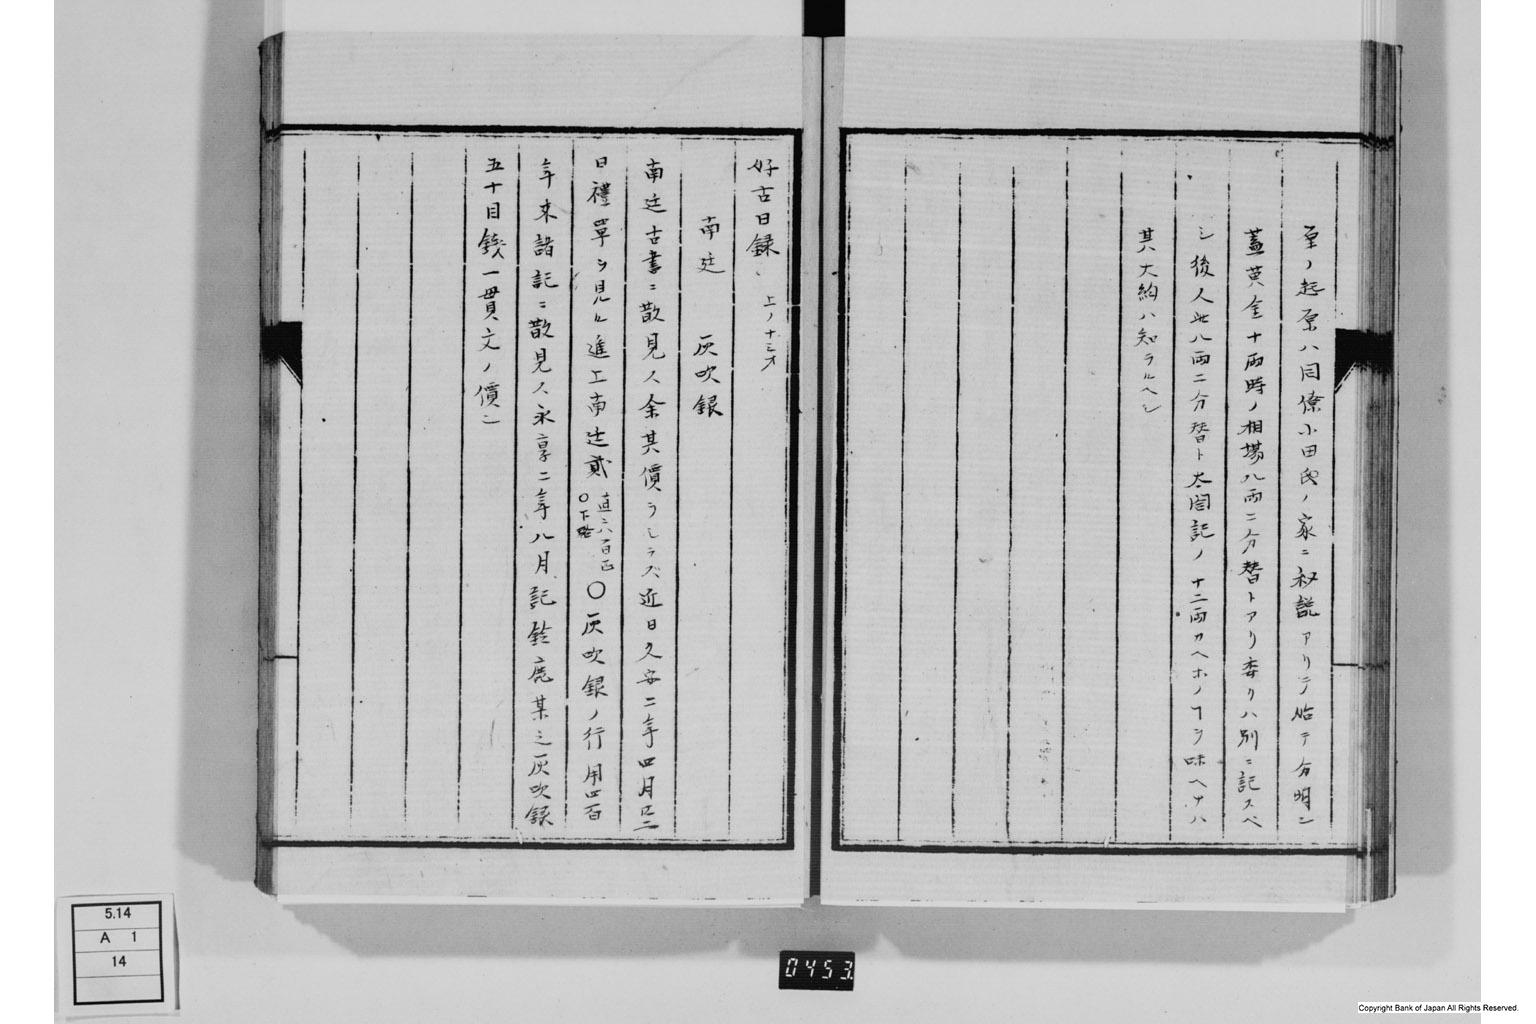 至ノ起原ハ同僚小田氏ノ家ニ秘説アリテ始テ分明シ
蓋黄金十両時ノ相場八両二分替トアリ委リハ別ニ記スベ
シ後人此八両二分替ト太閤記ノ十二両カヘホノヿヲ味ヘナハ
其大約ハ知ラルヘシ
好古日録 上ノ十三オ
南廷 灰吹銀
南廷古書ニ散見ス余其價ヲシラズ近日久安二年四月廿二
日禮單ヲ見ルニ進上南廷貳 直六百疋 〇下略 〇灰吹銀ノ行用四百
年来諸記ニ散見ス永享二年八月記鈴鹿某之灰吹銀
五十目錢一貫文ノ價ニ
5.14
A 1
14
0453
Copyright Bank of Japan All Rights Reserved.